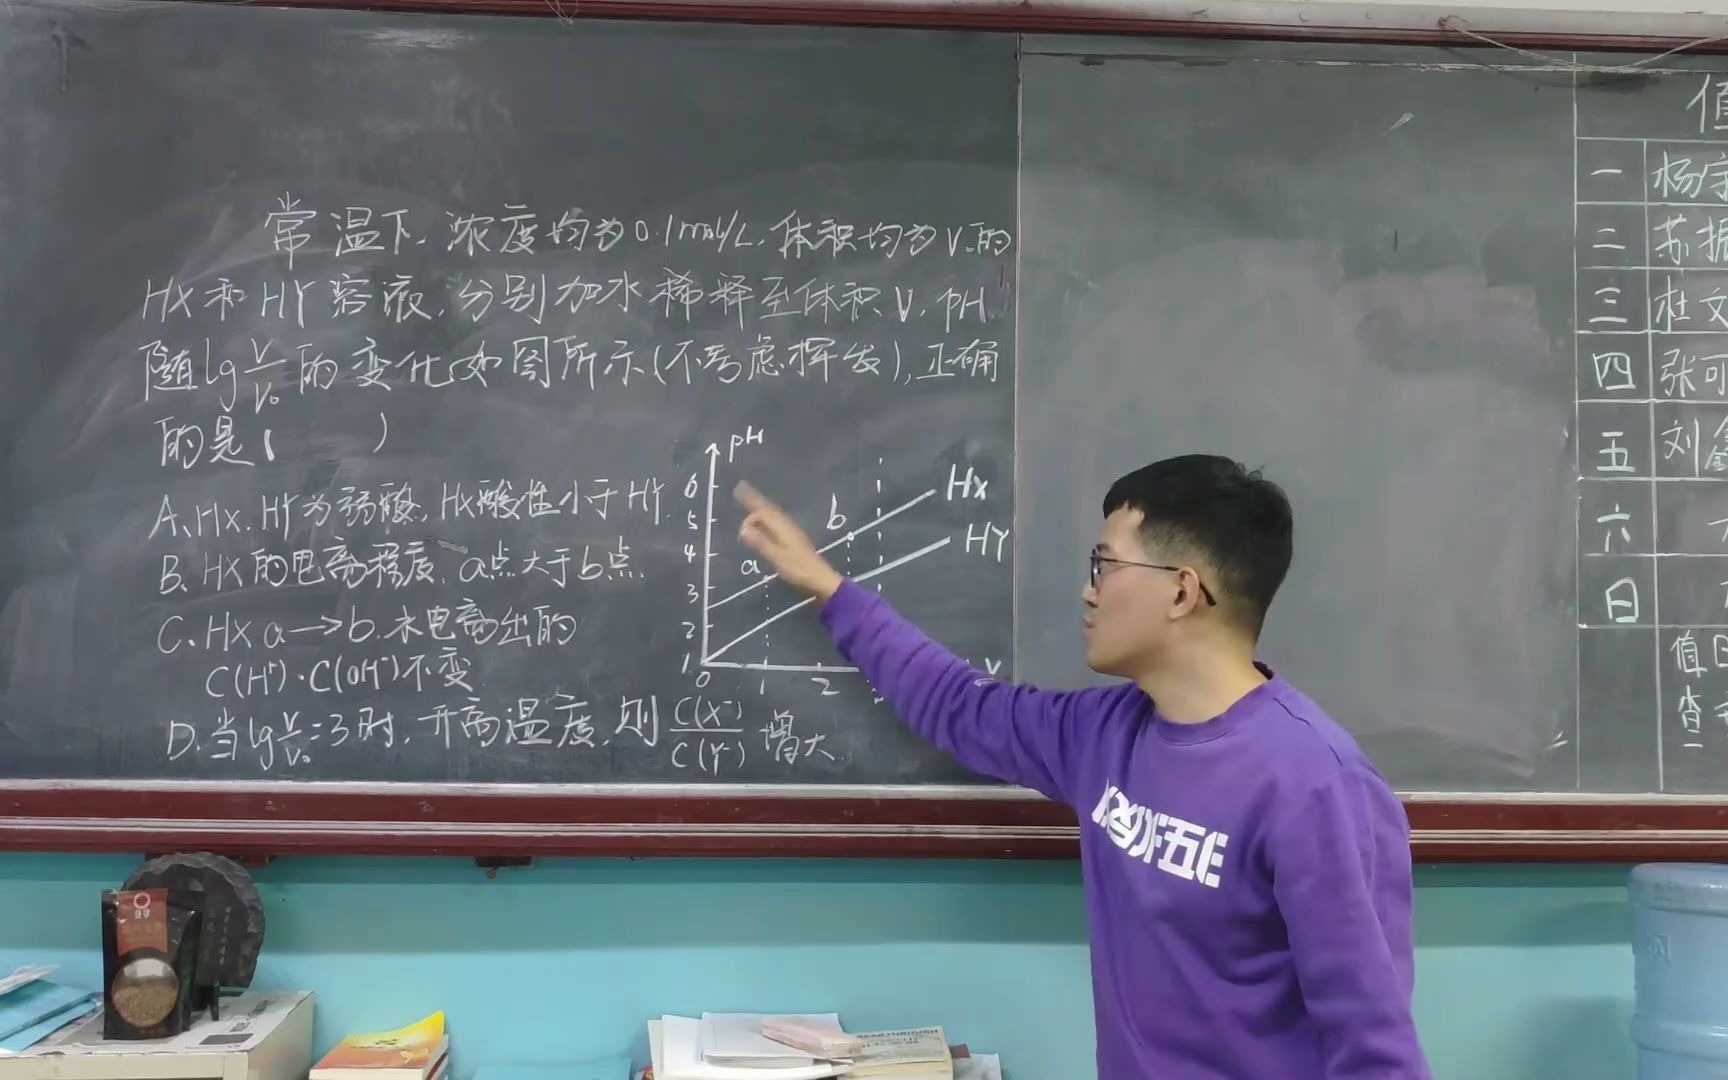 常温下,浓度均为0.1mol/L,体积均为V₀的
HX和HY溶液,分别加水稀释至体积V,pH
随lg V/V₀ 的变化如图所示(不考虑挥发),正确
的是( )
A、HX、HY为弱酸,HX酸性小于HY.
B、HX的电离程度,a点大于b点.
C、HX a→b,水电离出的
C(H⁺)·C(OH⁻)不变
D、当lg V/V₀=3时,升高温度,则 C(X⁻)/C(Y⁻) 增大.
pH
6
5
4
3
2
1
0 1 2
a
b
HX
HY
V
值
一 杨
二 苏振
三 杜文
四 张可
五 刘
六
日
值日
查